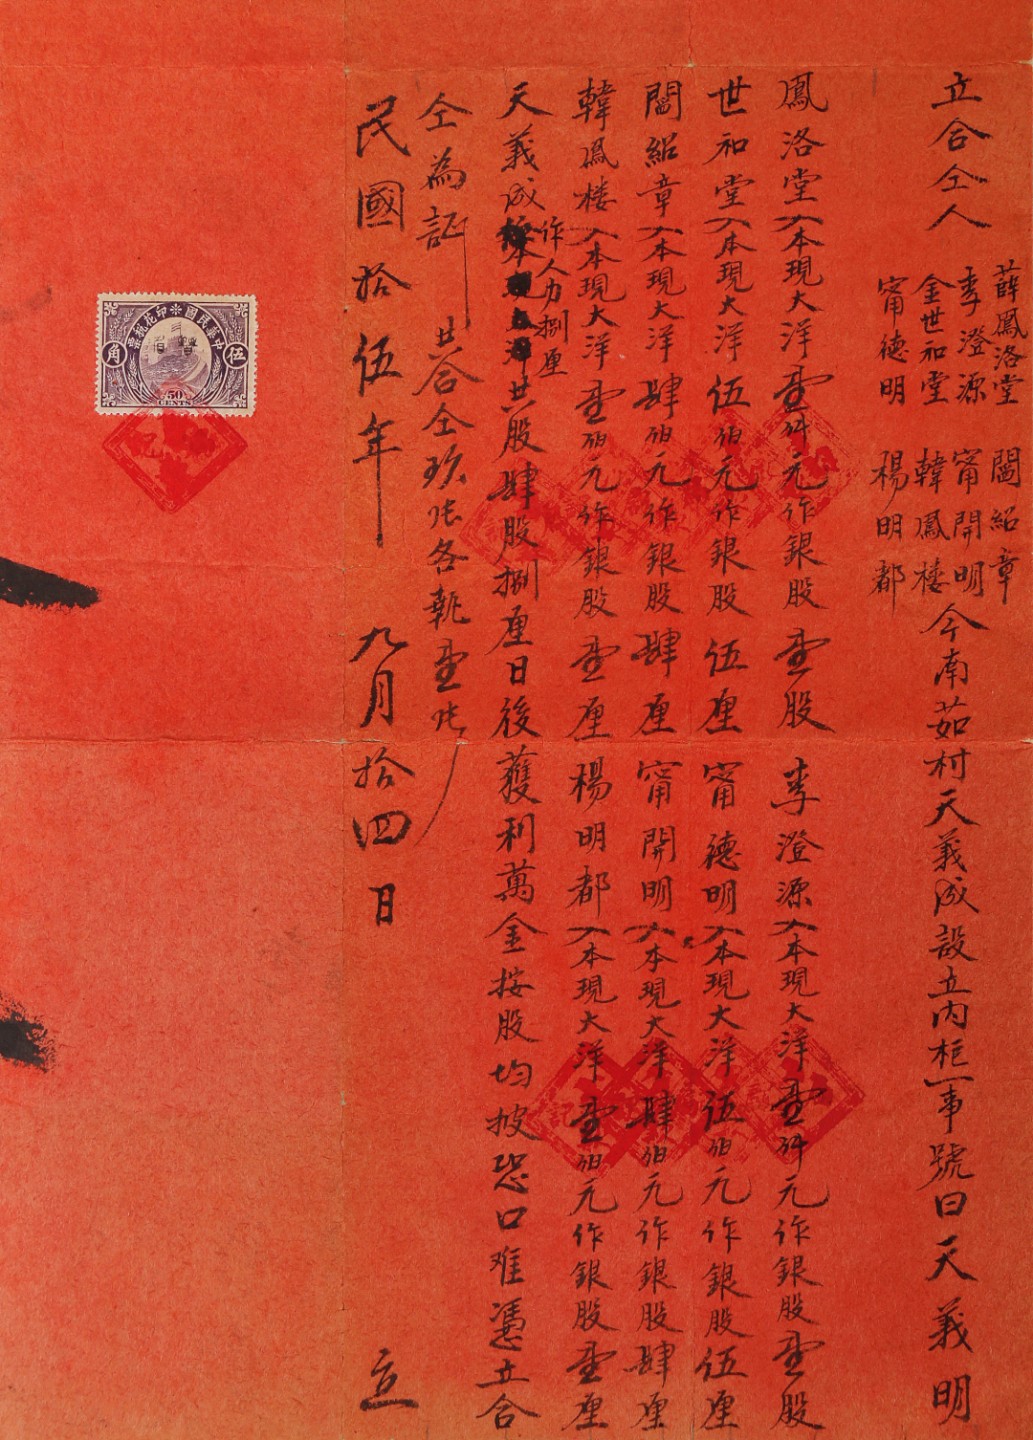 立合仝人
薛鳳洛堂 閻紹章
李澄源 甯開明
金世和堂 韓鳳樓
甯德明 楊明都
今南茹村天義成設立内柜一事號曰天義明
鳳洛堂入本現大洋壹仟元作銀股壹股 李澄源入本現大洋壹仟元作銀股壹股
世和堂入本現大洋伍佰元作銀股伍厘 甯德明入本現大洋伍佰元作銀股伍厘
閻紹章入本現大洋肆佰元作銀股肆厘 甯開明入本現大洋肆佰元作銀股肆厘
韓鳳樓入本現大洋壹佰元作銀股壹厘 楊明都入本現大洋壹佰元作銀股壹厘
作人力捌厘
天義成共股肆股捌厘日後獲利萬金按股均披恐口难憑立合
仝為証 共合仝玖張各執壹張
民國拾伍年 九月拾四日 立
中華民國印花稅票
伍
角
50
CENTS